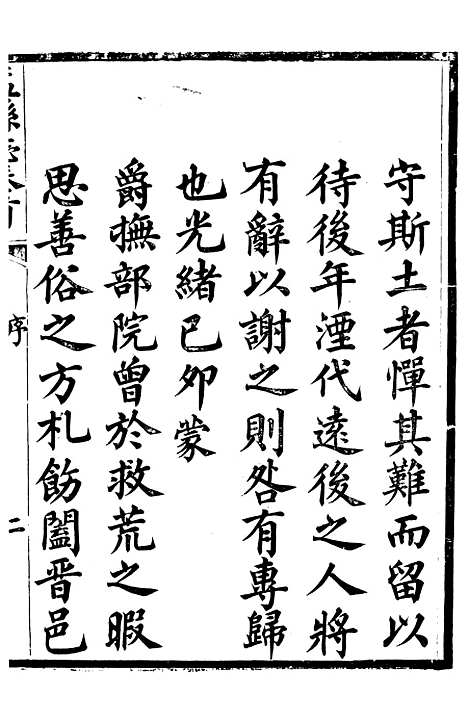 守斯土者憚其難而留以
待後年湮代遠後之人將
有辭以謝之則咎有專歸
也光緒己卯蒙
爵撫部院曾於救荒之暇
思善俗之方札飭闔晋邑
序
二